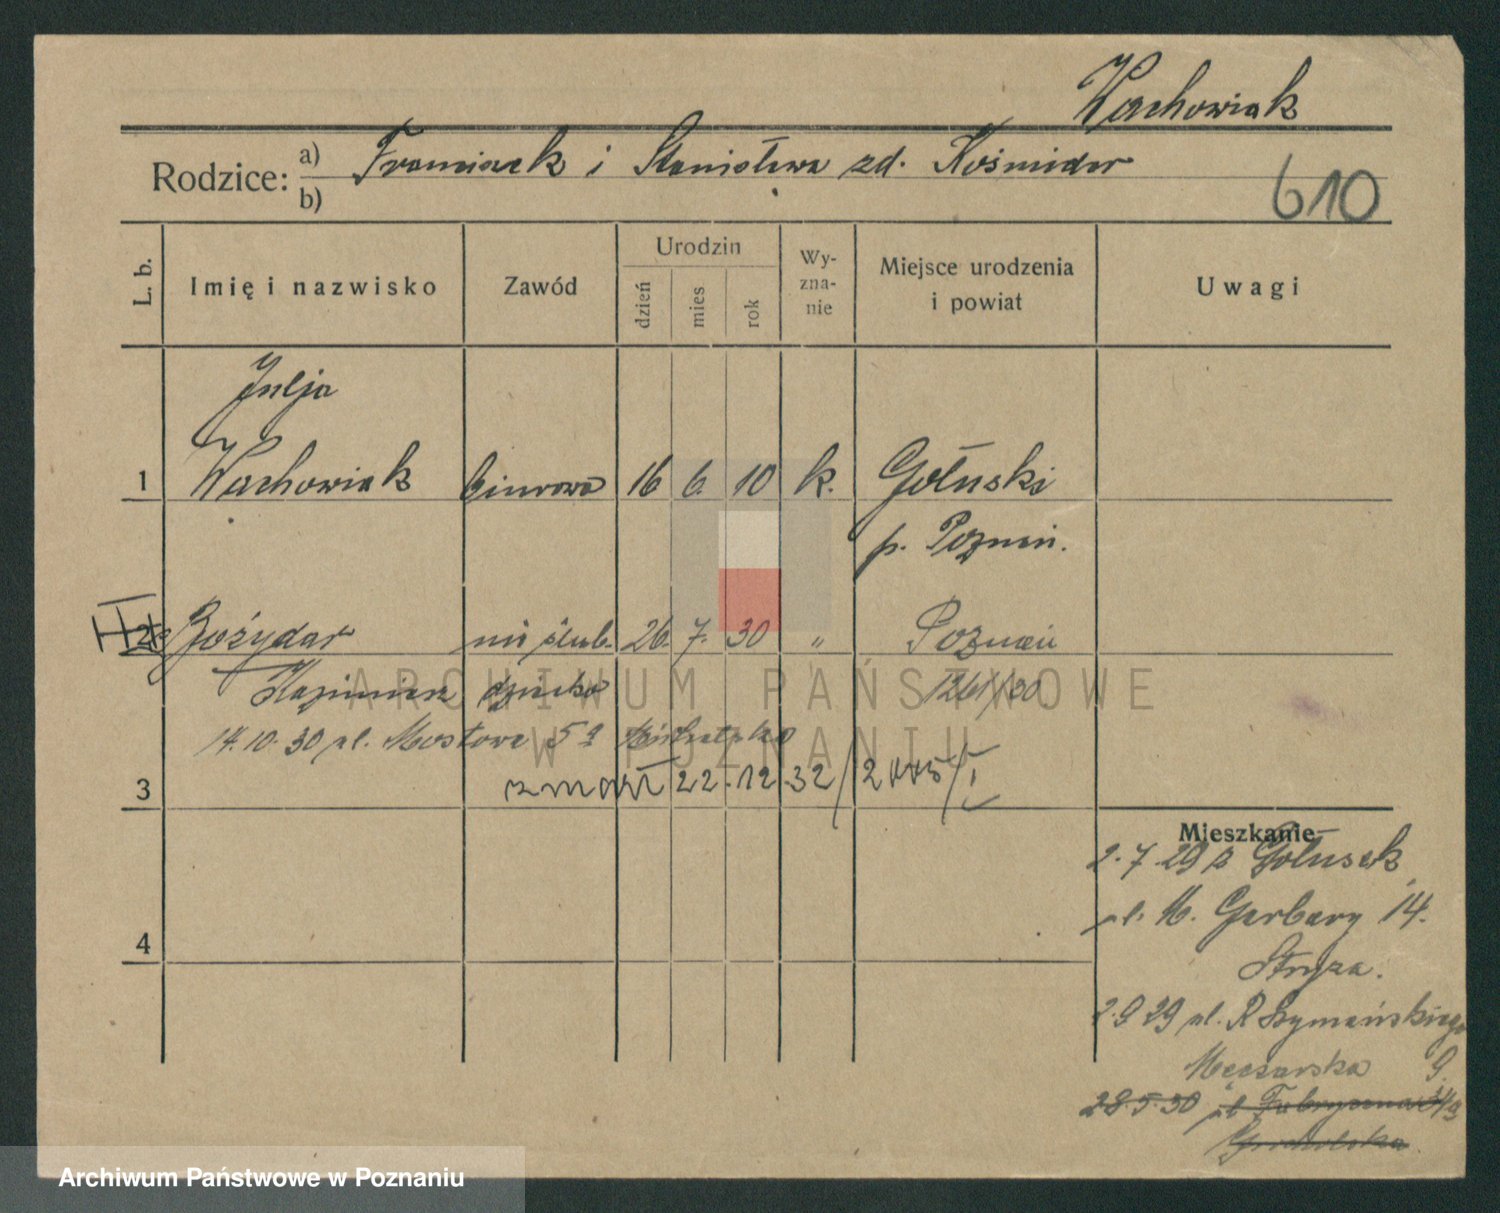 Wachowiak
Rodzice: a) Franciszek i Stanisława zd. Kośmider
b)
610
L. b.
Imię i nazwisko
Zawód
Urodzin
dzień
mies
rok
Wy-
zna-
nie
Miejsce urodzenia
i powiat
Uwagi
Julja
1 Wachowiak biurowa 16 6. 10 k. Gołuski
p. Poznań.
2 Bożydar nieślub. 26. 7. 30 " Poznań
Kazimierz dziecko 1261/30
14.10.30 ul. Mostowa 5a
zmarł 22.12.32/2445/I
3
Mieszkanie
2.7.29 z Gołusek
ul. M. Garbary 14.
Stryza.
2.9.29 ul. R. Szymańskiego 9.
Męczarska
28.5.30 ul. Fabryczna
4
ARCHIWUM PAŃSTWOWE
W POZNANIU
Archiwum Państwowe w Poznaniu